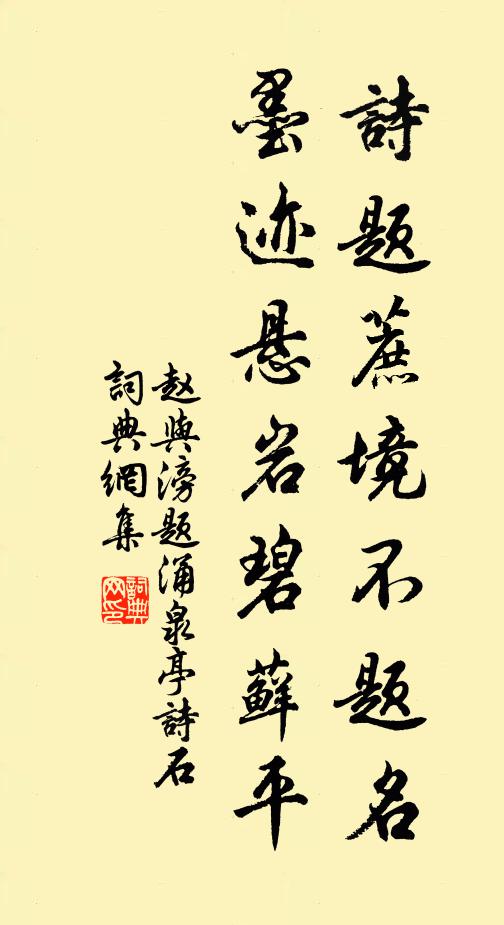 詩題蔗境不题名
墨迹悬岩碧蘚平
赵與滂题涌泉亭詩石
詞典網集
詞典网印